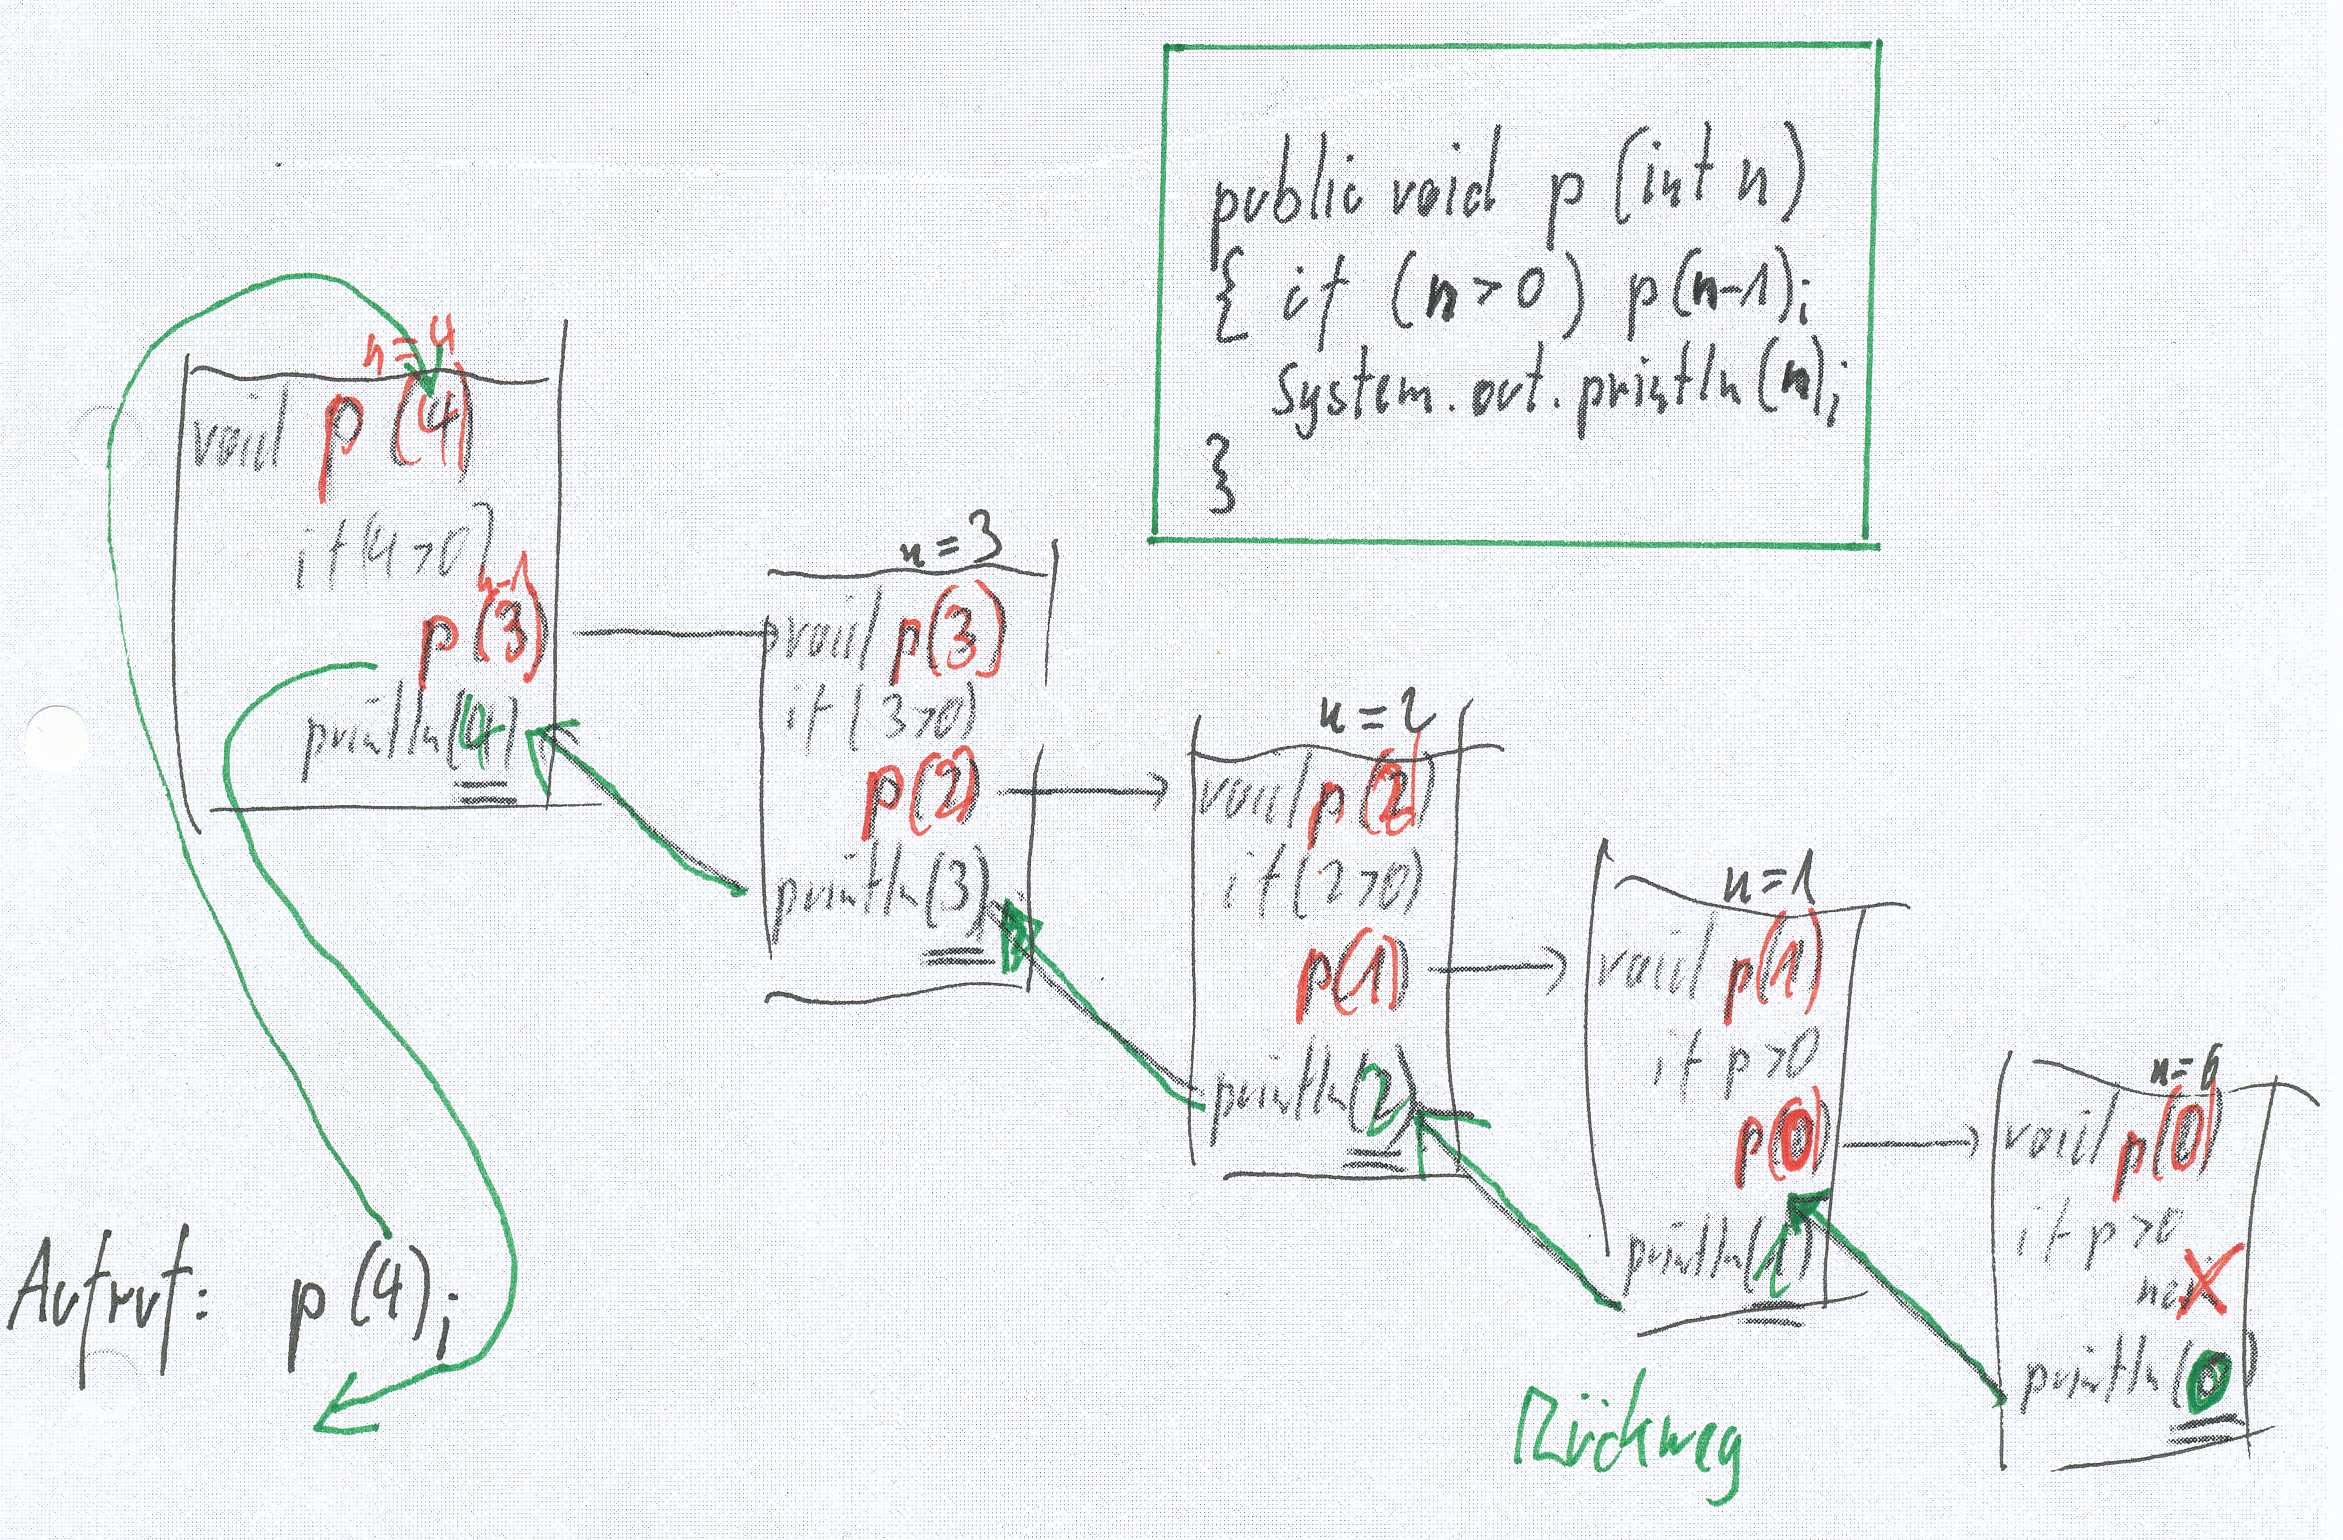 public void p (int n)
{ if (n>0) p(n-1);
System.out.println(n);
}
n=4
void p(4)
if(4>0)
n-1
p(3)
println(4)
n=3
void p(3)
if(3>0)
p(2)
println(3)
n=2
void p(2)
if(2>0)
p(1)
println(2)
n=1
void p(1)
if p>0
p(0)
println(1)
n=0
void p(0)
if p>0
nein
println(0)
Aufruf: p(4);
Rückweg